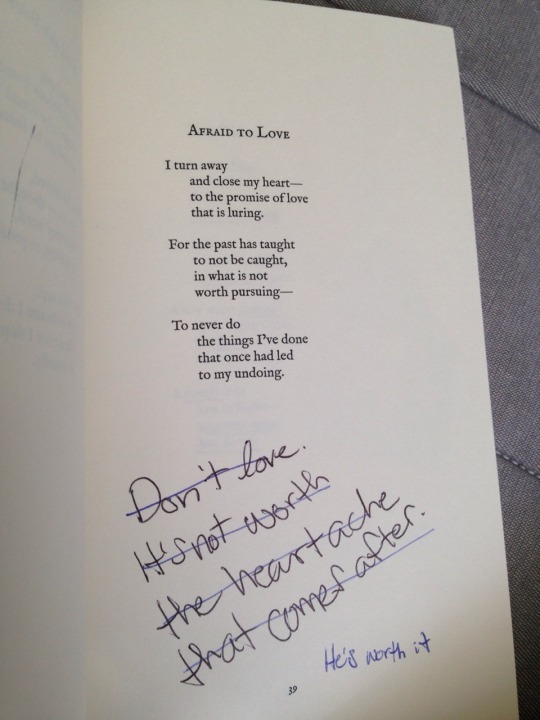 AFRAID TO LOVE
I turn away
and close my heart—
to the promise of love
that is luring.
For the past has taught
to not be caught,
in what is not
worth pursuing—
To never do
the things I've done
that once had led
to my undoing.
Don't love.
It's not worth
the heartache
that comes after.
He's worth it
39